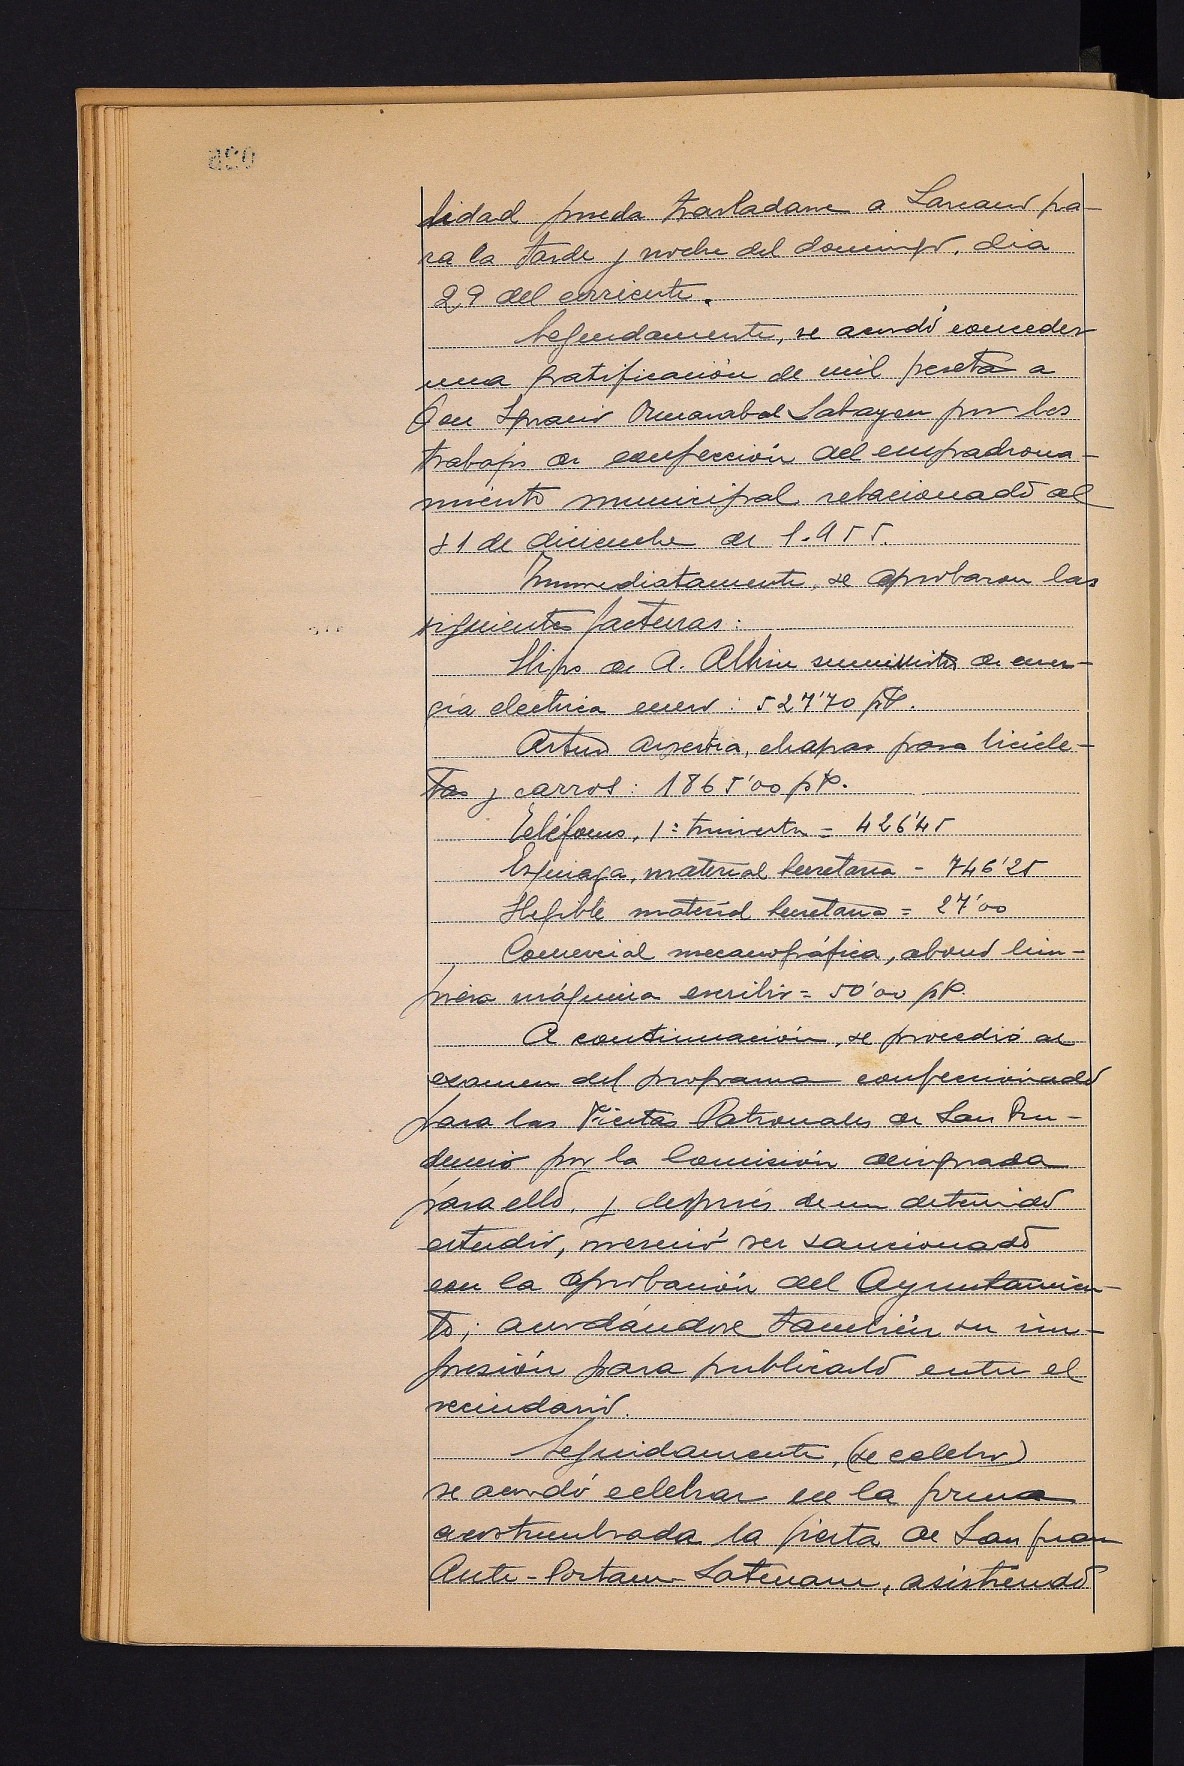 lidad pueda trasladarse a Lazcano pa-
ra la tarde y noche del domingo, dia
29 del corriente.
Segundamente, se acordó conceder
una gratificación de mil pesetas a
Don Ignacio Ormazabal Sabayen por los
trabajos de confección del empadrona-
miento municipal relacionado al
31 de diciembre de 1.955.
Inmediatamente, se aprobaron las
siguientes facturas:
Hijos de A. Albin suministro de ener-
gia electrica enero: 527'70 pts.
Arturo, chapas para bicicle-
tas y carros: 1865'00 pts.
Teléfonos, 1º trimestre = 426'45
Eguiaga, material Secretaria - 746'25
material Secretaria = 27'00
Comercial mecanográfica, abono lim-
pieza máquina escribir = 50'00 pts.
A continuación, se procedió al
examen del programa confeccionado
para las Fiestas Patronales de San Pru-
dencio por la Comisión designada
para ello, y después de un detenido
estudio, mereció ser sancionado
con la aprobación del Ayuntamien-
to; acordándose también su im-
presión para publicarlo entre el
vecindario.
Seguidamente, (se celebro)
se acordó celebrar en la forma
acostumbrada la fiesta de San Juan
Ante-Portam Latinam, asistiendo